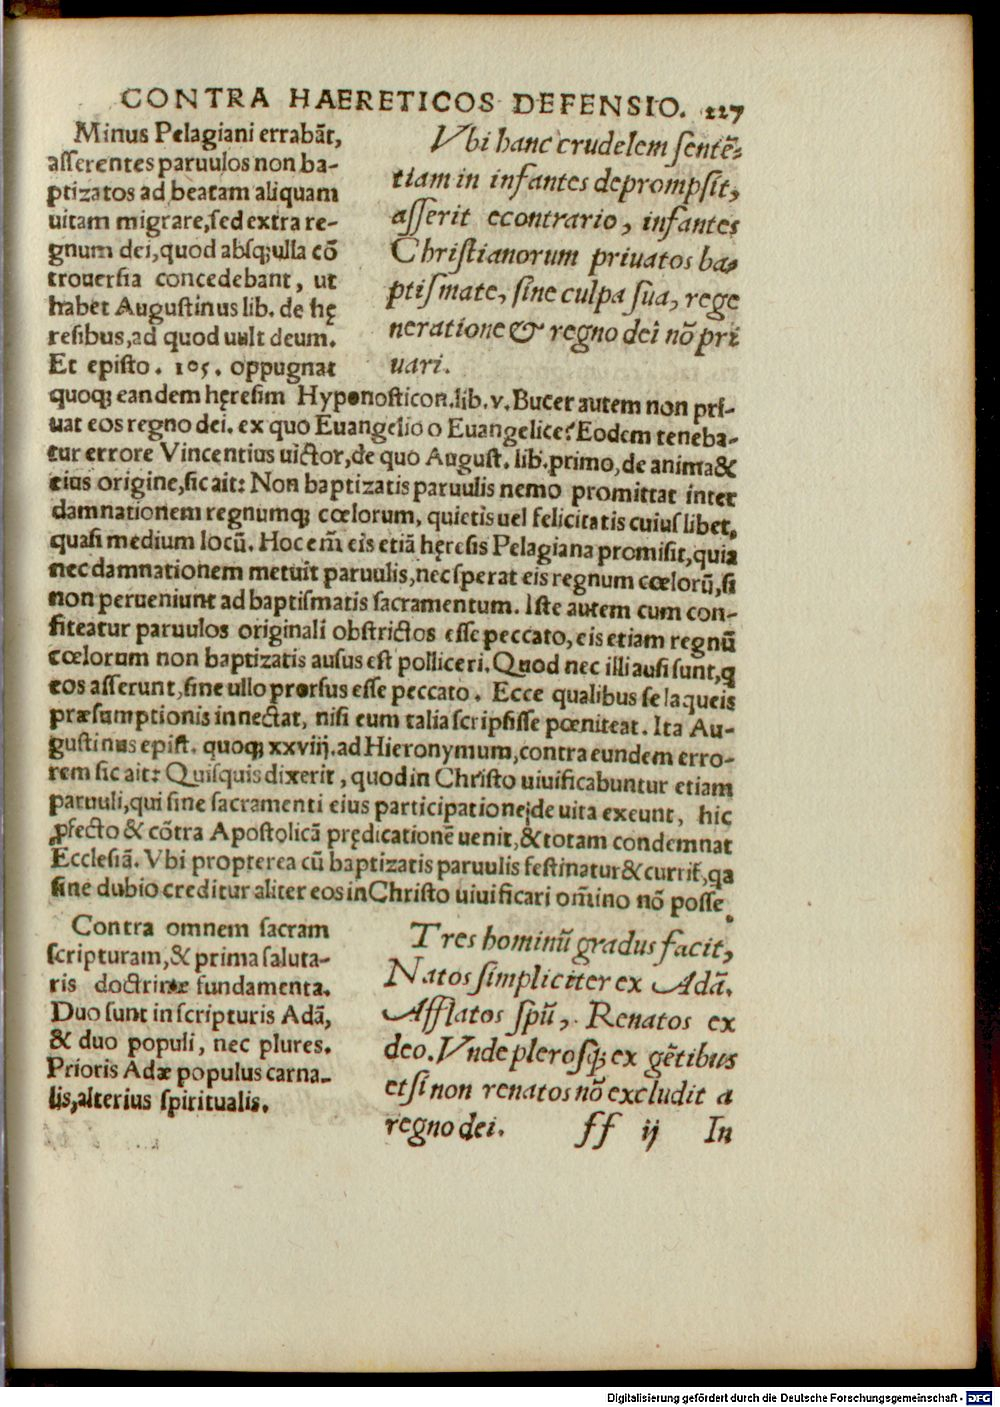 CONTRA HAERETICOS DEFENSIO. 127
Minus Pelagiani errabāt,
asserentes paruulos non ba-
ptizatos ad beatam aliquam
uitam migrare, sed extra re-
gnum dei, quod absq; ulla cō
trouersia concedebant, ut
habet Augustinus lib. de hę
resibus, ad quod uult deum.
Et episto. 105. oppugnat
Vbi hanc crudelem sentē-
tiam in infantes deprompsit,
asserit econtrario, infantes
Christianorum priuatos ba-
ptismate, sine culpa sua, rege
neratione & regno dei nō pri
uari.
quoq; eandem hęresim Hyponosticon. lib. v. Bucer autem non pri-
uat eos regno dei. ex quo Euangelio o Euangelice? Eodem teneba-
tur errore Vincentius uictor, de quo August. lib. primo, de anima &
eius origine, sic ait: Non baptizatis paruulis nemo promittat inter
damnationem regnumq; cœlorum, quietis uel felicitatis cuiuslibet,
quasi medium locū. Hoc em̄ eis etiā hęresis Pelagiana promisit, quia
nec damnationem metuit paruulis, nec sperat eis regnum cœlorū, si
non perueniunt ad baptismatis sacramentum. Iste autem cum con-
fiteatur paruulos originali obstrictos esse peccato, eis etiam regnū
cœlorum non baptizatis ausus est polliceri. Quod nec illi ausi sunt, q
eos asserunt, sine ullo prorsus esse peccato. Ecce qualibus se laqueis
præsumptionis innectat, nisi eum talia scripsisse pœniteat. Ita Au-
gustinus epist. quoq; xxviij. ad Hieronymum, contra eundem erro-
rem sic ait: Quisquis dixerit, quod in Christo uiuificabuntur etiam
paruuli, qui sine sacramenti eius participatione de uita exeunt, hic
ꝓfecto & cōtra Apostolicā prędicationē uenit, & totam condemnat
Ecclesiā. Vbi propterea cū baptizatis paruulis festinatur & currit, qa
sine dubio creditur aliter eos in Christo uiuificari om̄ino nō posse.
Contra omnem sacram
scripturam, & prima saluta-
ris doctrinæ fundamenta.
Duo sunt in scripturis Adā,
& duo populi, nec plures.
Prioris Adæ populus carna-
lis, alterius spiritualis.
Tres hominū gradus facit,
Natos simpliciter ex Adā.
Afflatos spū, Renatos ex
deo. Vnde plerosq; ex gētibus
etsi non renatos nō excludit a
regno dei.
ff ij In
Digitalisierung gefördert durch die Deutsche Forschungsgemeinschaft - DFG